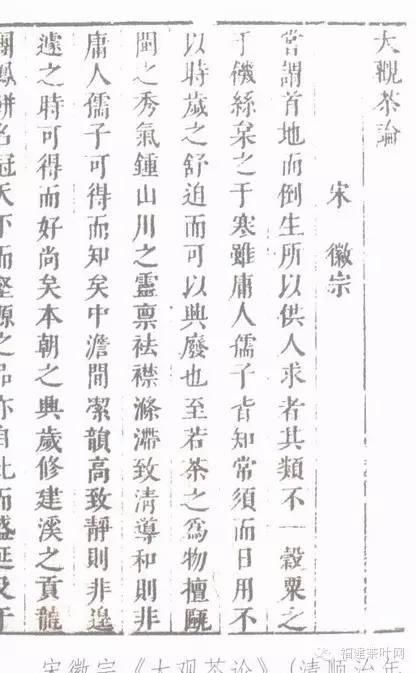 大觀茶論
宋 徽宗
嘗謂首地而倒生所以供人求者其類不一穀粟之
于饑絲枲之于寒雖庸人儒子皆知常須而日用不
以時歲之舒迫而可以興廢也至若茶之爲物擅甌
閩之秀氣鍾山川之靈禀祛襟滌滯致清導和則非
庸人儒子可得而知矣中澹間潔韻高致靜則非遑
遽之時可得而好尚矣本朝之興歲修建溪之貢龍
團鳳餅名冠天下而壑源之品亦自此而盛延及于
福建茶叶网
宋徽宗《大观茶论》(清顺治年